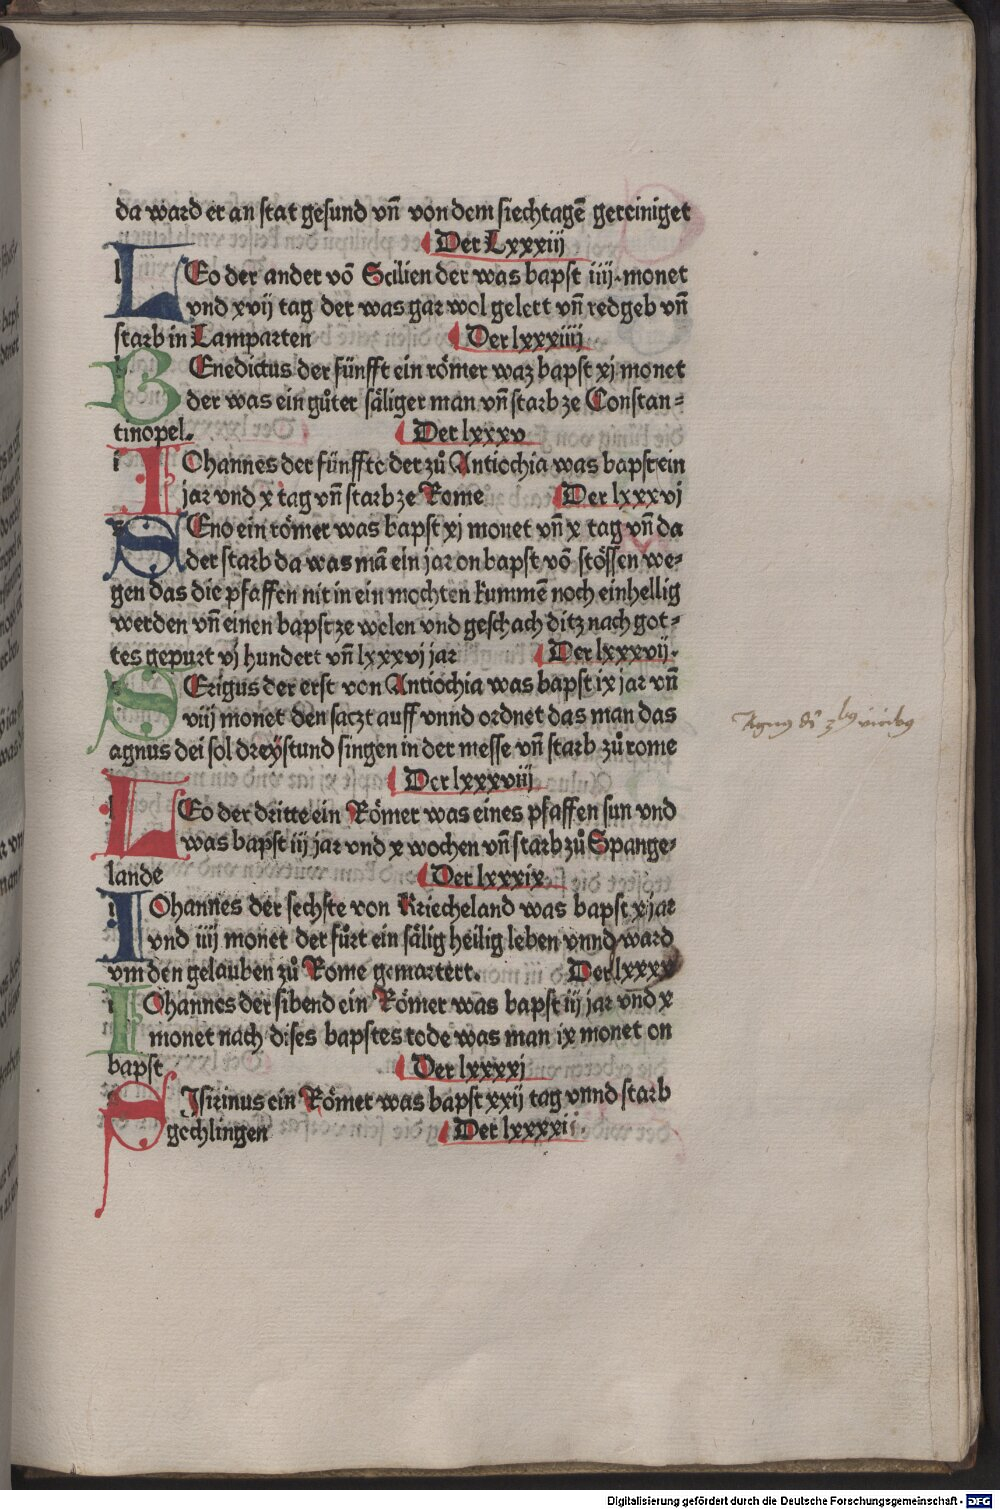 da ward er an stat gesund vn̄ von dem siechtagē gereiniget
Der Lxxxiij
LEo der ander vō Scilien der was bapst iiij monet
vnd xvij tag der was gar wol gelert vn̄ redgeb vn̄
starb in Lamparten Der lxxxiiij
BEnedictus der fünfft ein römer waz bapst xj monet
der was ein gůter säliger man vn̄ starb ze Constan=
tinopel. Der lxxxv
IOhannes der fünffte der zů Antiochia was bapst ein
jar vnd x tag vn̄ starb ze Rome Der lxxxvj
SEno ein römer was bapst xj monet vn̄ x tag vn̄ da
der starb da was mā ein jar on bapst vō stössen we=
gen das die pfaffen nit in ein mochten kummē noch einhellig
werden vn̄ einen bapst ze welen vnd geschach ditz nach got=
tes gepurt vj hundert vn̄ lxxxvj jar Der lxxxvij.
SErigus der erst von Antiochia was bapst ix jar vn̄
viij monet den saczt auff vnnd ordnet das man das
agnus dei sol dreystund singen in der messe vn̄ starb zů rome
Der lxxxviij
LEo der dritte ein Römer was eines pfaffen sun vnd
was bapst iij jar vnd x wochen vn̄ starb zů Spange=
lande Der lxxxix
IOhannes der sechste von Kriecheland was bapst x jar
vnd iiij monet der fůrt ein sälig heilig leben vnnd ward
vm den gelauben zů Rome gemartert. Der lxxxx
IOhannes der sibend ein Römer was bapst iij jar vnd x
monet nach dises bapstes tode was man ix monet on
bapst Der lxxxxj
SIsirinus ein Römer was bapst xxij tag vnnd starb
gechlingen Der lxxxxij.
Digitalisierung gefördert durch die Deutsche Forschungsgemeinschaft - DFG